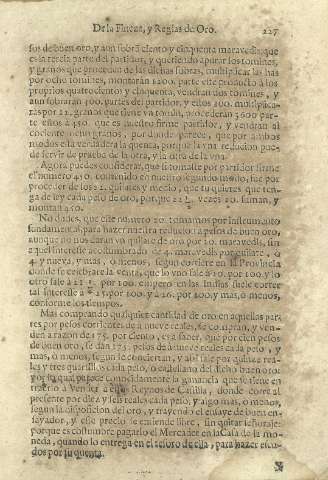 De la Fineza, y Reglas de Oro. 227
sos de buen oro, y aun sobra ciento y cinquenta maravedis, que
es la tercia parte del partidor, y queriendo apurar los tomines,
y granos que proceden de las dichas sobras, multiplicar las has
por ocho tomines, montaràn 1200. parte este producto à los
proprios quatrocientos y cinquenta, vendran dos tomines, y
aun sobraràn 300. partes del partidor, y estos 300. multiplica-
ràs por 12. granos que tiene un tomin, procederàn 3600 par-
te estos à 450. que es nuestro firme partidor, y vendràn al
cociente ocho granos, por donde parece, que por ambos
modos està verdadera la quenta, porque la una reduccion pue-
de servir de prueba de la otra, y la otra de la una.
Agora puedes considerar, que si tomaste por partidor firme
el numero 450. contenido en nuestro segundo modo, fue por
proceder de los 22. quilates y medio, que tu quieres que ten-
ga de ley cada peso de oro, porque 22 vezes 20. suman, y
montan 450.
No dudes, que este numero 20. tomamos por instrumento
fundamental, para hazer nuestra reduccion à pesos de buen oro,
aunque no nos daràn un quilate de oro por 20. maravedis, sin
aquel interesse acostumbrado de 4. maravedis por quilate, ò
4. y nueva, y mas, ò menos, segun corriere en la Provincia
donde se celebrare la venta, que lo uno sale à 20. por 100. y lo
otro sale à 22 por 100. empero en las Indias suele correr
tal interesse à 25. por 100. y à 26. por 100. y mas, ò menos,
conforme los tiempos.
Mas comprando qualquier cantidad de oro en aquellas par-
res por pesos corrientes de à nueve reales, se compran, y ven-
den à razon de 175. por ciento, esto es, que por cien pesos
de buen oro, se dàn 175. pesos de à nueve reales cada peso, y
mas, ò menos, segun se conciertan, y assi sale por quinze rea-
les y tres quartillos cada peso, ò castellano del dicho buen oro
por lo qual parece conocidamente la ganancia que se tiene en
traerlo à vender à estos Reynos de Castilla, donde corre al
presente por diez y seis reales cada peso, y algo mas, ò menos,
segun la disposicion del oro, y trayendo el ensaye de buen en-
sayador, y este precio se entiende libre, sin quitar señoreage
porque es costumbre pagarlo el Mercader en la Casa de la mo-
neda, quando lo entrega en el tesoro de ella, para hazer escu-
dos por su quenta.